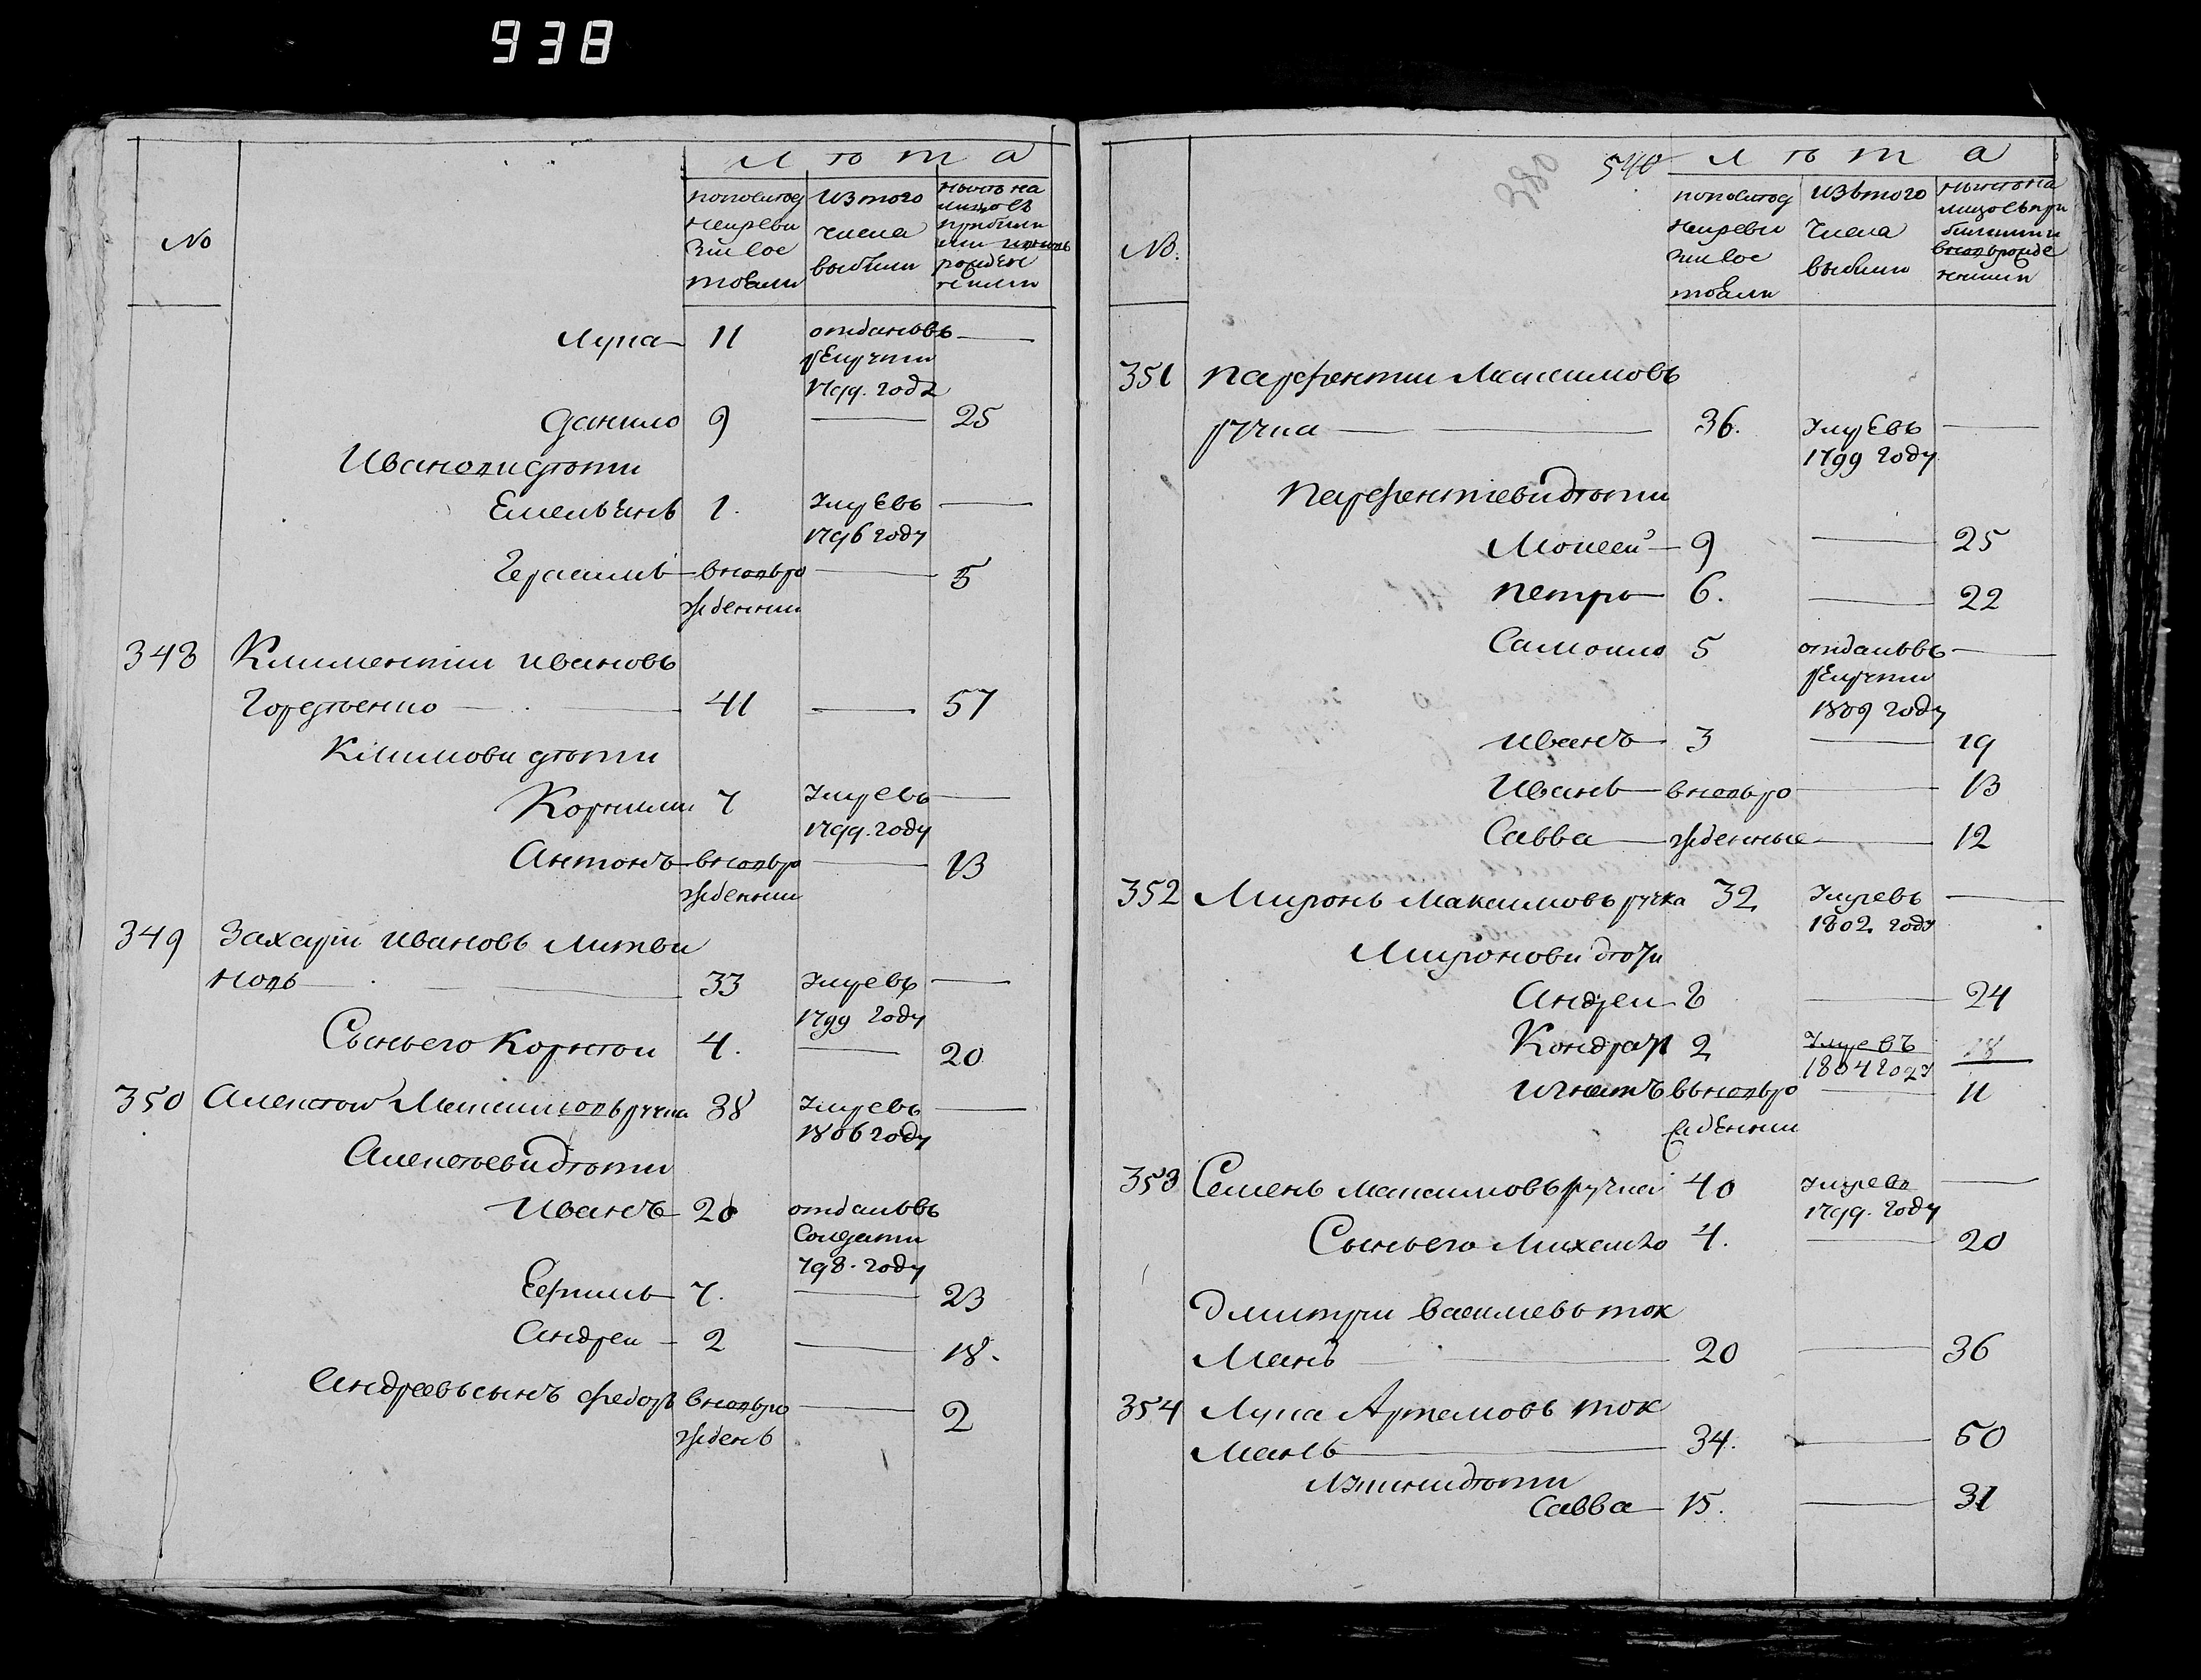 938
№
Л ѣ т а
по последней ревизии состояли
Из того числа выбыли
Лука 11 отданъ въ рекруты 1799. года —
Данило 9 — 25
Ивановы дѣти
Емельянъ 1. Умре въ 1796 году —
Герасимъ вновь рожденный — 5
348 Климентий Ивановъ
Гордѣенко — 41 — 57
Климови дѣти
Корнили 7 Умре въ 1799. году —
Антонъ вновь рожденный — 13
349 Захарий Ивановъ Литви
новъ — 33 Умре въ 1799 году —
Сынъ его Корнѣй 4. — 20
350 Алексѣй Максимовъ ручка 38 Умре въ 1806 году —
Алексѣеви дѣти
Иванъ 20 отданъ въ солдати 798. году
Ефимъ 7. — 23
Андрей 2 — 18.
Андреевъ сынъ Федоръ вновь рожденъ — 2
540
№.
Л ѣ т а
по последней ревизии состояли
Изъ того числа выбыли
351 Парфентий Максимовъ
ручка — 36. Умре въ 1799 году —
Парфентиеви дѣти
Моисей 9 — 25
Петръ 6. — 22
Самойло 5 отданъ въ рекруты 1809 году —
Иванъ 3 — 19
Иванъ вновь ро — 13
Савва жденные — 12
352 Миронъ Максимовъ ручка 32 Умре въ 1802 году —
Миронови дѣти
Андрей 8 — 24
Кондрат 2 Умре въ 1804 году 18
Игнатъ вновь рожденный — 11
353 Семенъ Максимовъ ручка 40 Умре въ 1799. году —
Сынъ его Михайло 4. — 20
Дмитрий Васильевъ ток
манъ — 20 — 36
354 Лука Артемовъ ток
манъ — 34. — 50
Лукини дѣти
Савва 15. — 31